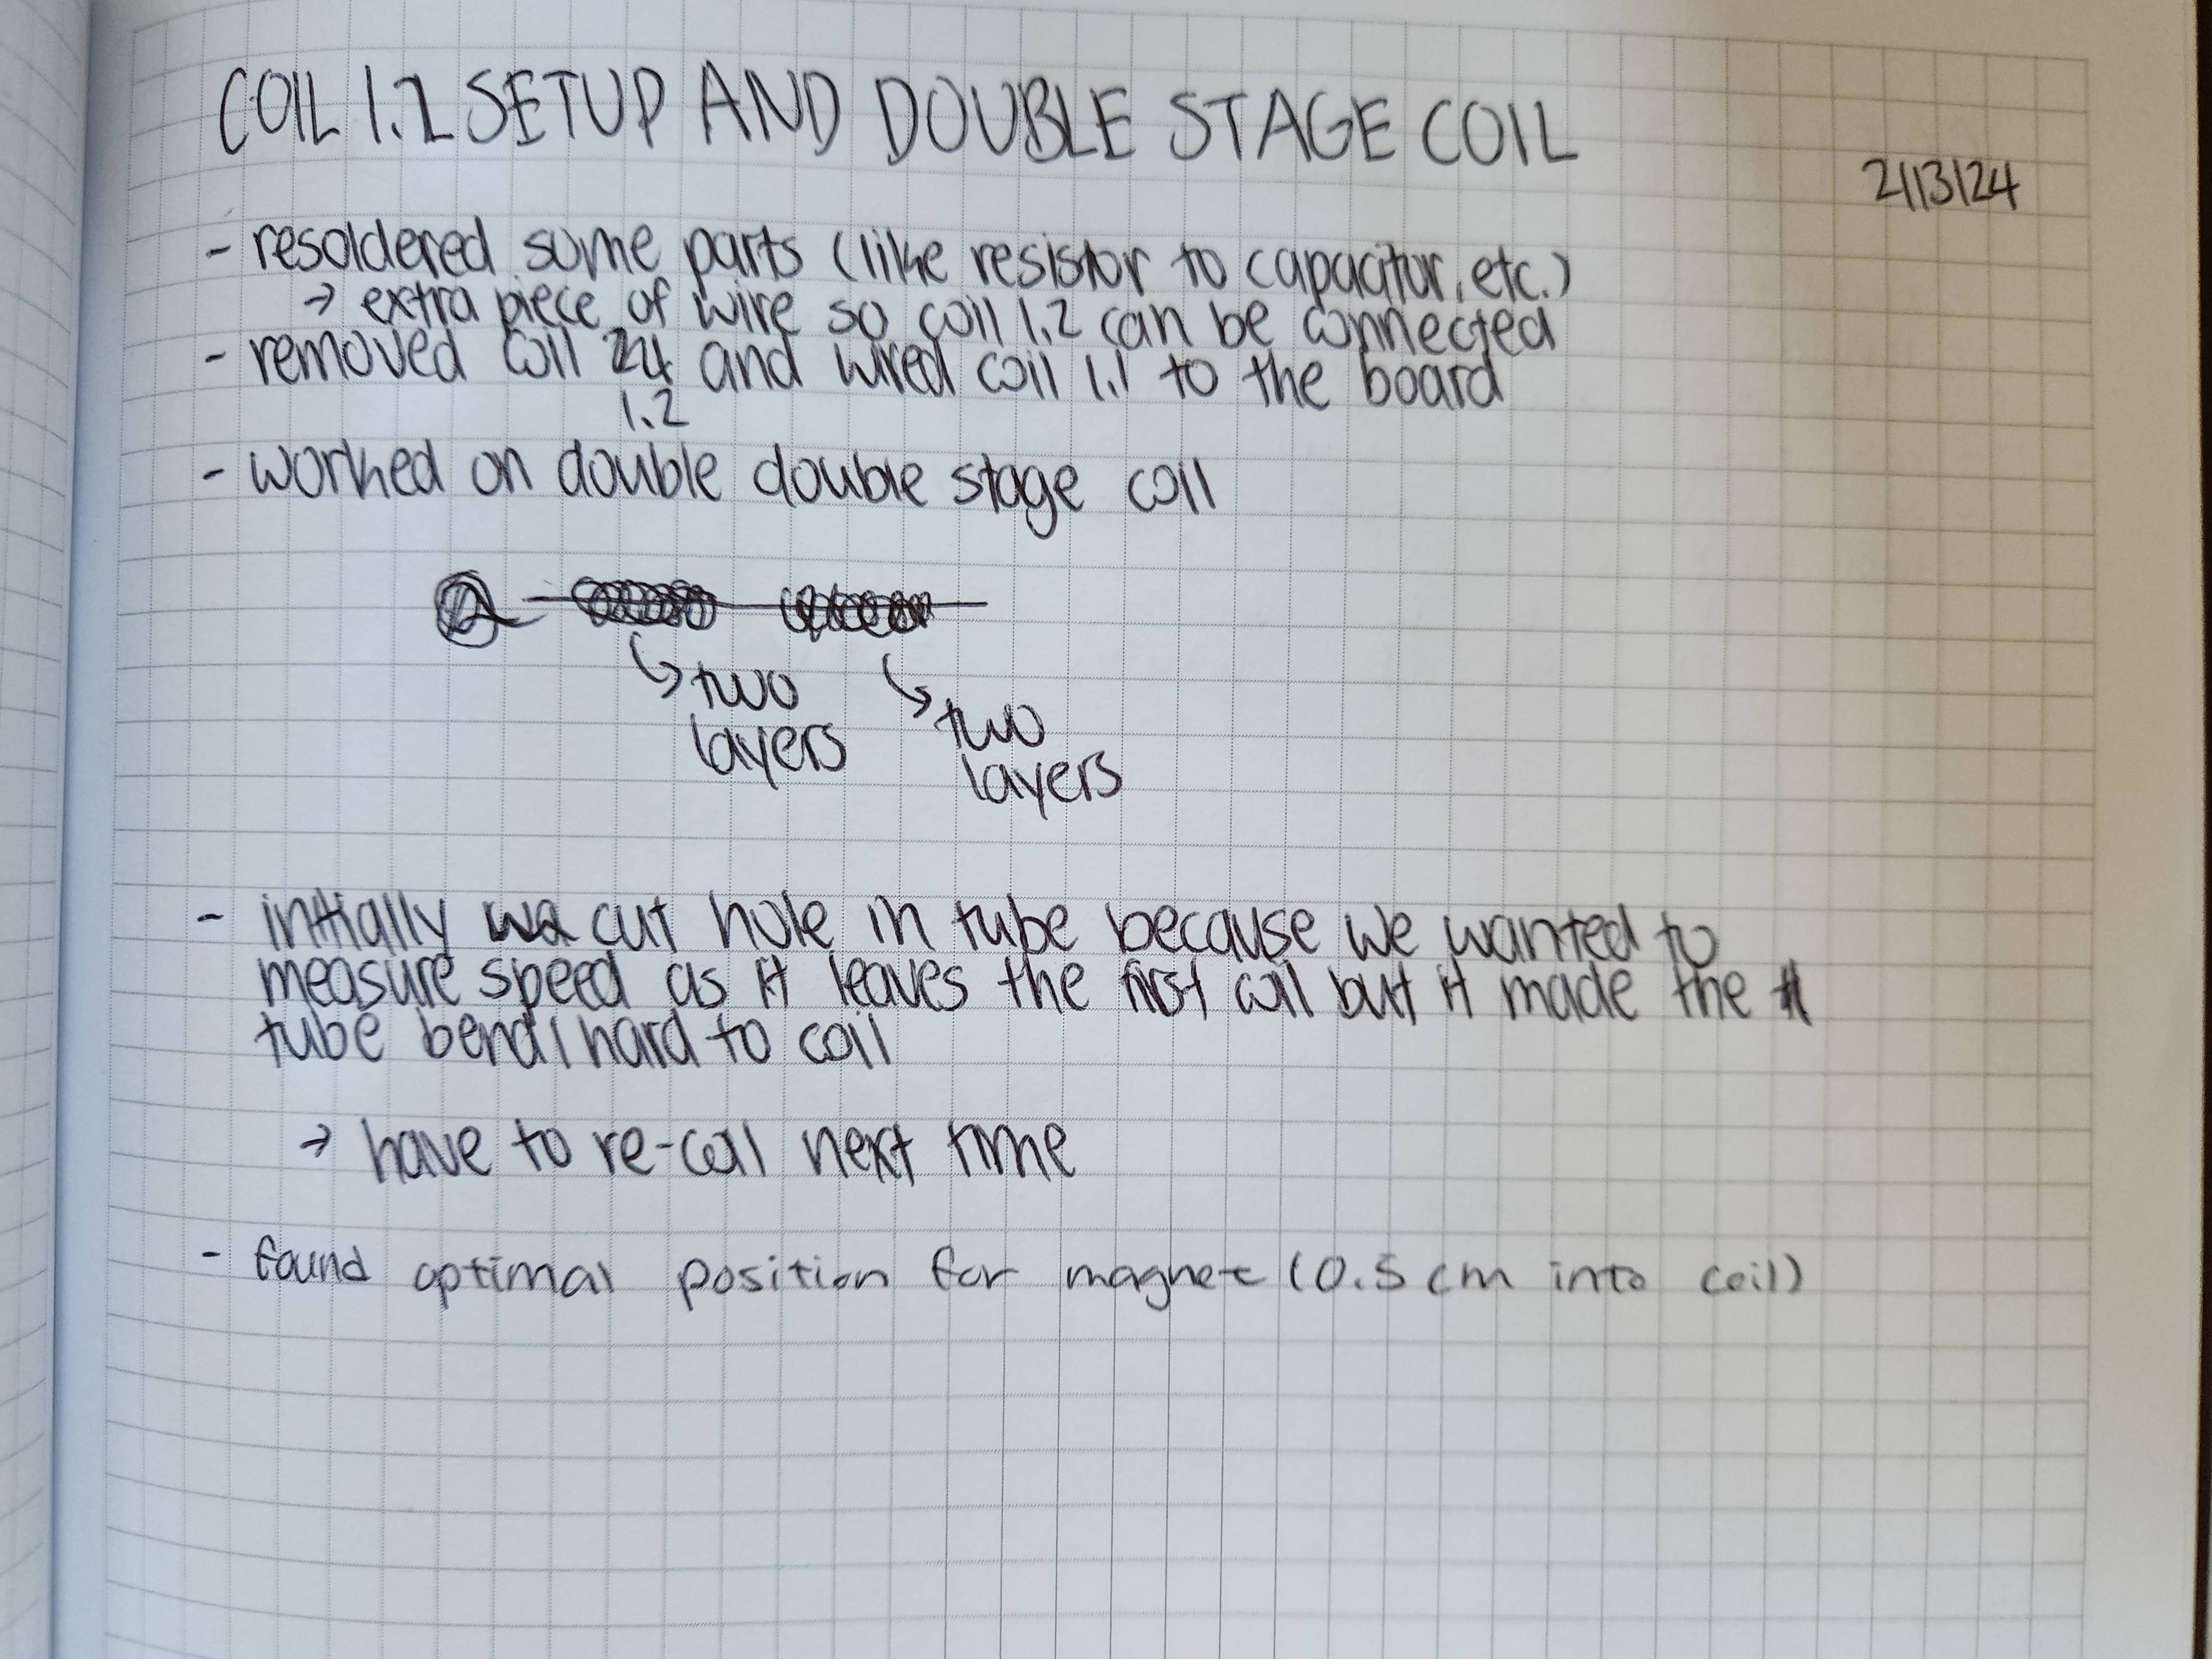 COIL 1.2 SETUP AND DOUBLE STAGE COIL
2/13/24
- resoldered some parts (like resistor to capacitor, etc.)
→ extra piece of wire so coil 1.2 can be connected
- removed coil 24 and wired coil 1.1 to the board
1.2
- worked on double double stage coil
two
layers
two
layers
- initially we cut hole in tube because we wanted to
measure speed as it leaves the first coil but it made the
tube bend/hard to coil
→ have to re-coil next time
- found optimal position for magnet (0.5 cm into coil)